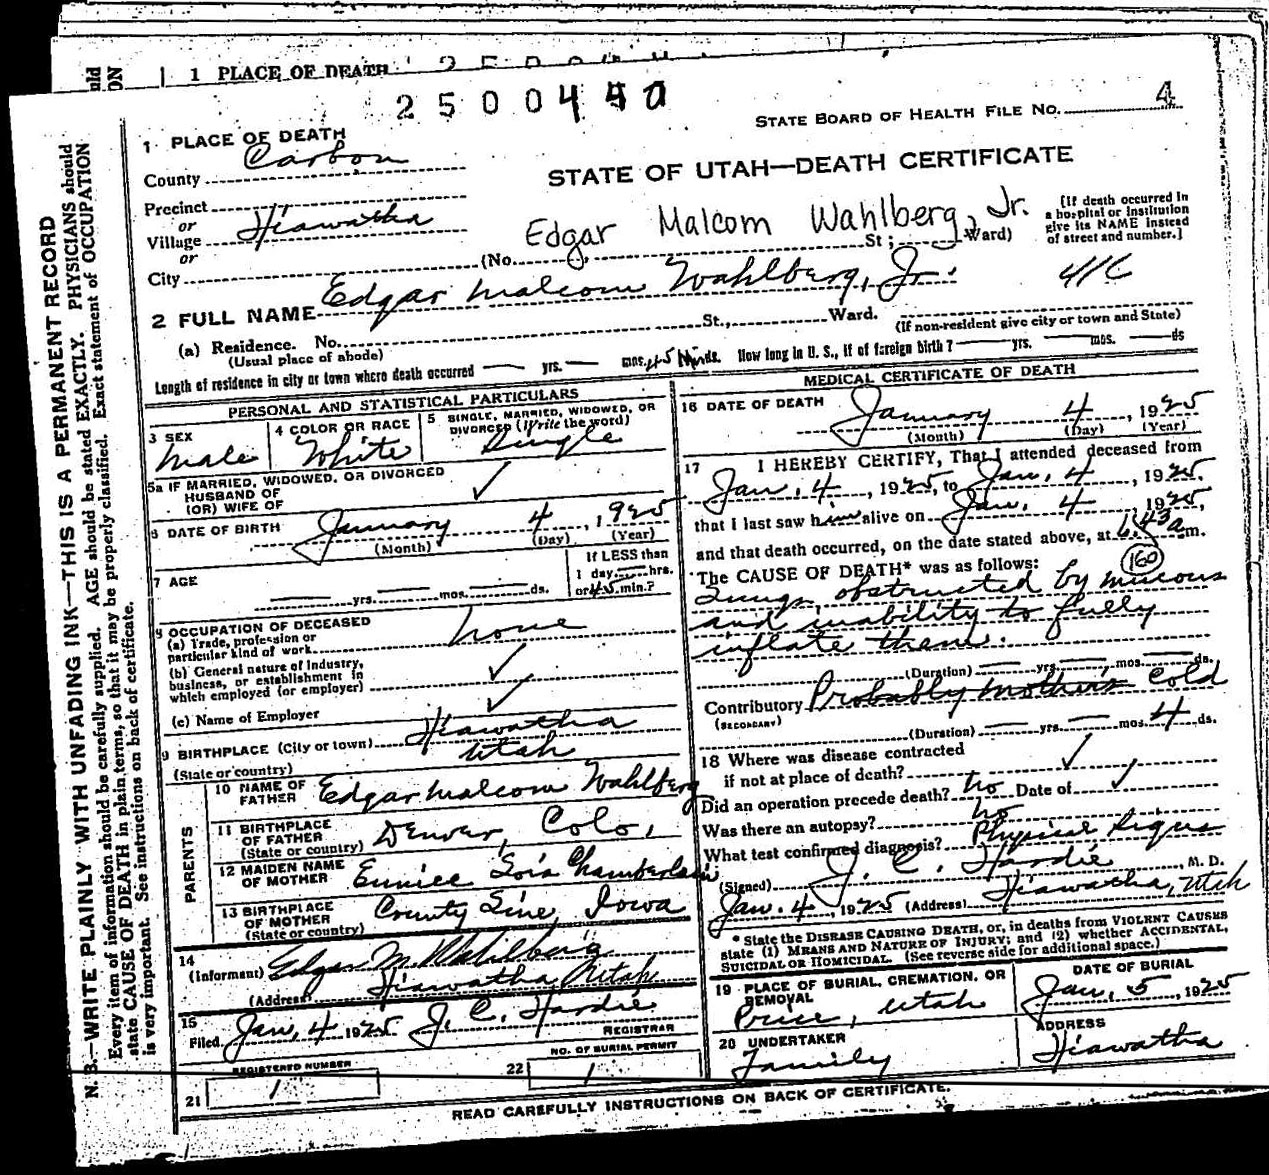 1 PLACE OF DEATH
2500440
STATE BOARD OF HEALTH FILE NO. 4
1 PLACE OF DEATH
County Carbon
STATE OF UTAH—DEATH CERTIFICATE
Precinct
or
Village Hiawatha
or
City
Edgar Malcom Wahlberg, Jr.
(No. St; Ward)
[If death occurred in a hospital or institution give its NAME instead of street and number.]
2 FULL NAME Edgar Malcom Wahlberg, Jr.
(a) Residence. No. St., Ward.
(Usual place of abode)
(If non-resident give city or town and State)
Length of residence in city or town where death occurred — yrs. — mos. 45 Min ds. How long in U. S., if of foreign birth? — yrs. — mos. — ds
PERSONAL AND STATISTICAL PARTICULARS
3 SEX Male
4 COLOR OR RACE White
5 SINGLE, MARRIED, WIDOWED, OR DIVORCED (Write the word) Single
5a IF MARRIED, WIDOWED, OR DIVORCED
HUSBAND OF
(OR) WIFE OF ✓
6 DATE OF BIRTH January 4, 1925
(Month) (Day) (Year)
7 AGE — yrs. — mos. — ds.
If LESS than
1 day — hrs.
or 45 min.?
8 OCCUPATION OF DECEASED
(a) Trade, profession or
particular kind of work none
(b) General nature of industry,
business, or establishment in
which employed (or employer) ✓
(c) Name of Employer ✓
9 BIRTHPLACE (City or town) Hiawatha
(State or country) Utah
PARENTS
10 NAME OF FATHER Edgar Malcom Wahlberg
11 BIRTHPLACE OF FATHER (State or country) Denver, Colo,
12 MAIDEN NAME OF MOTHER Eunice Lois Chamberlain
13 BIRTHPLACE OF MOTHER (State or country) County Line, Iowa
14
(Informant) Edgar M. Wahlberg
(Address) Hiawatha Utah
15
Filed Jan, 4 1925 J. C. Hardie
REGISTRAR
REGISTERED NUMBER
21 1
NO. OF BURIAL PERMIT
22 1
MEDICAL CERTIFICATE OF DEATH
16 DATE OF DEATH
January 4, 1925
(Month) (Day) (Year)
17 I HEREBY CERTIFY, That I attended deceased from
Jan. 4, 1925, to Jan, 4, 1925,
that I last saw him alive on Jan. 4, 1925,
and that death occurred, on the date stated above, at 6.43 a m.
The CAUSE OF DEATH* was as follows: 160
Lungs, obstructed by mucous
and inability to fully
inflate them.
(Duration) — yrs. — mos. — ds.
Contributory Probably mother's cold
(SECONDARY)
(Duration) — yrs. — mos. 4 ds.
18 Where was disease contracted
if not at place of death? ✓
Did an operation precede death? No Date of ✓
Was there an autopsy? No
What test confirmed diagnosis? Physical Signs
(Signed) J. C. Hardie, M. D.
Jan. 4, 1925 (Address) Hiawatha, Utah
* State the DISEASE CAUSING DEATH, or, in deaths from VIOLENT CAUSES
state (1) MEANS AND NATURE OF INJURY; and (2) whether ACCIDENTAL,
SUICIDAL OR HOMICIDAL. (See reverse side for additional space.)
19 PLACE OF BURIAL, CREMATION, OR REMOVAL
Price, Utah
DATE OF BURIAL
Jan, 5, 1925
20 UNDERTAKER
Family
ADDRESS
Hiawatha
READ CAREFULLY INSTRUCTIONS ON BACK OF CERTIFICATE.
N. B.—WRITE PLAINLY WITH UNFADING INK—THIS IS A PERMANENT RECORD
Every item of information should be carefully supplied. AGE should be stated EXACTLY. PHYSICIANS should
state CAUSE OF DEATH in plain terms, so that it may be properly classified. Exact statement of OCCUPATION
is very important. See instructions on back of certificate.